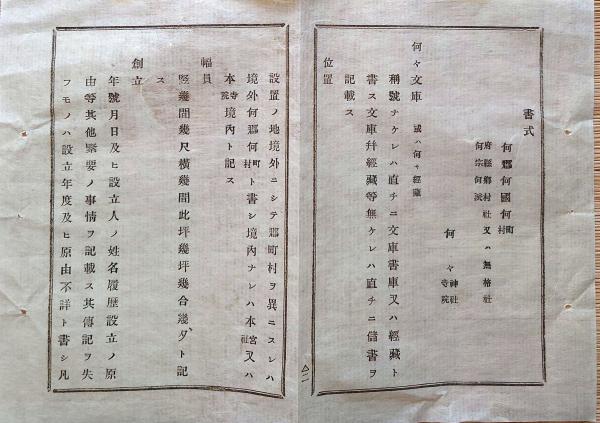 書式
何郡何國何町村
府縣鄉村社又ハ無格社
何宗何派
何々神社寺院
何々文庫 或ハ何々經藏
稱號ナケレハ直チニ文庫書庫又ハ經藏ト
書ス文庫幷經藏等無ケレハ直チニ備書ヲ
記載ス
位置
設置ノ地境外ニシテ郡町村ヲ異ニスレハ
境外何郡何町村ト書シ境内ナレハ本宮社又ハ
本寺院境內ト記ス
幅員
竪幾間幾尺橫幾間此坪幾坪幾合幾夕ト記
ス
創立
年號月日及ヒ設立人ノ姓名履歷設立ノ原
由等其他緊要ノ事情ヲ記載ス其傳記ヲ失
フモノハ設立年度及ヒ原由不詳ト書シ凡